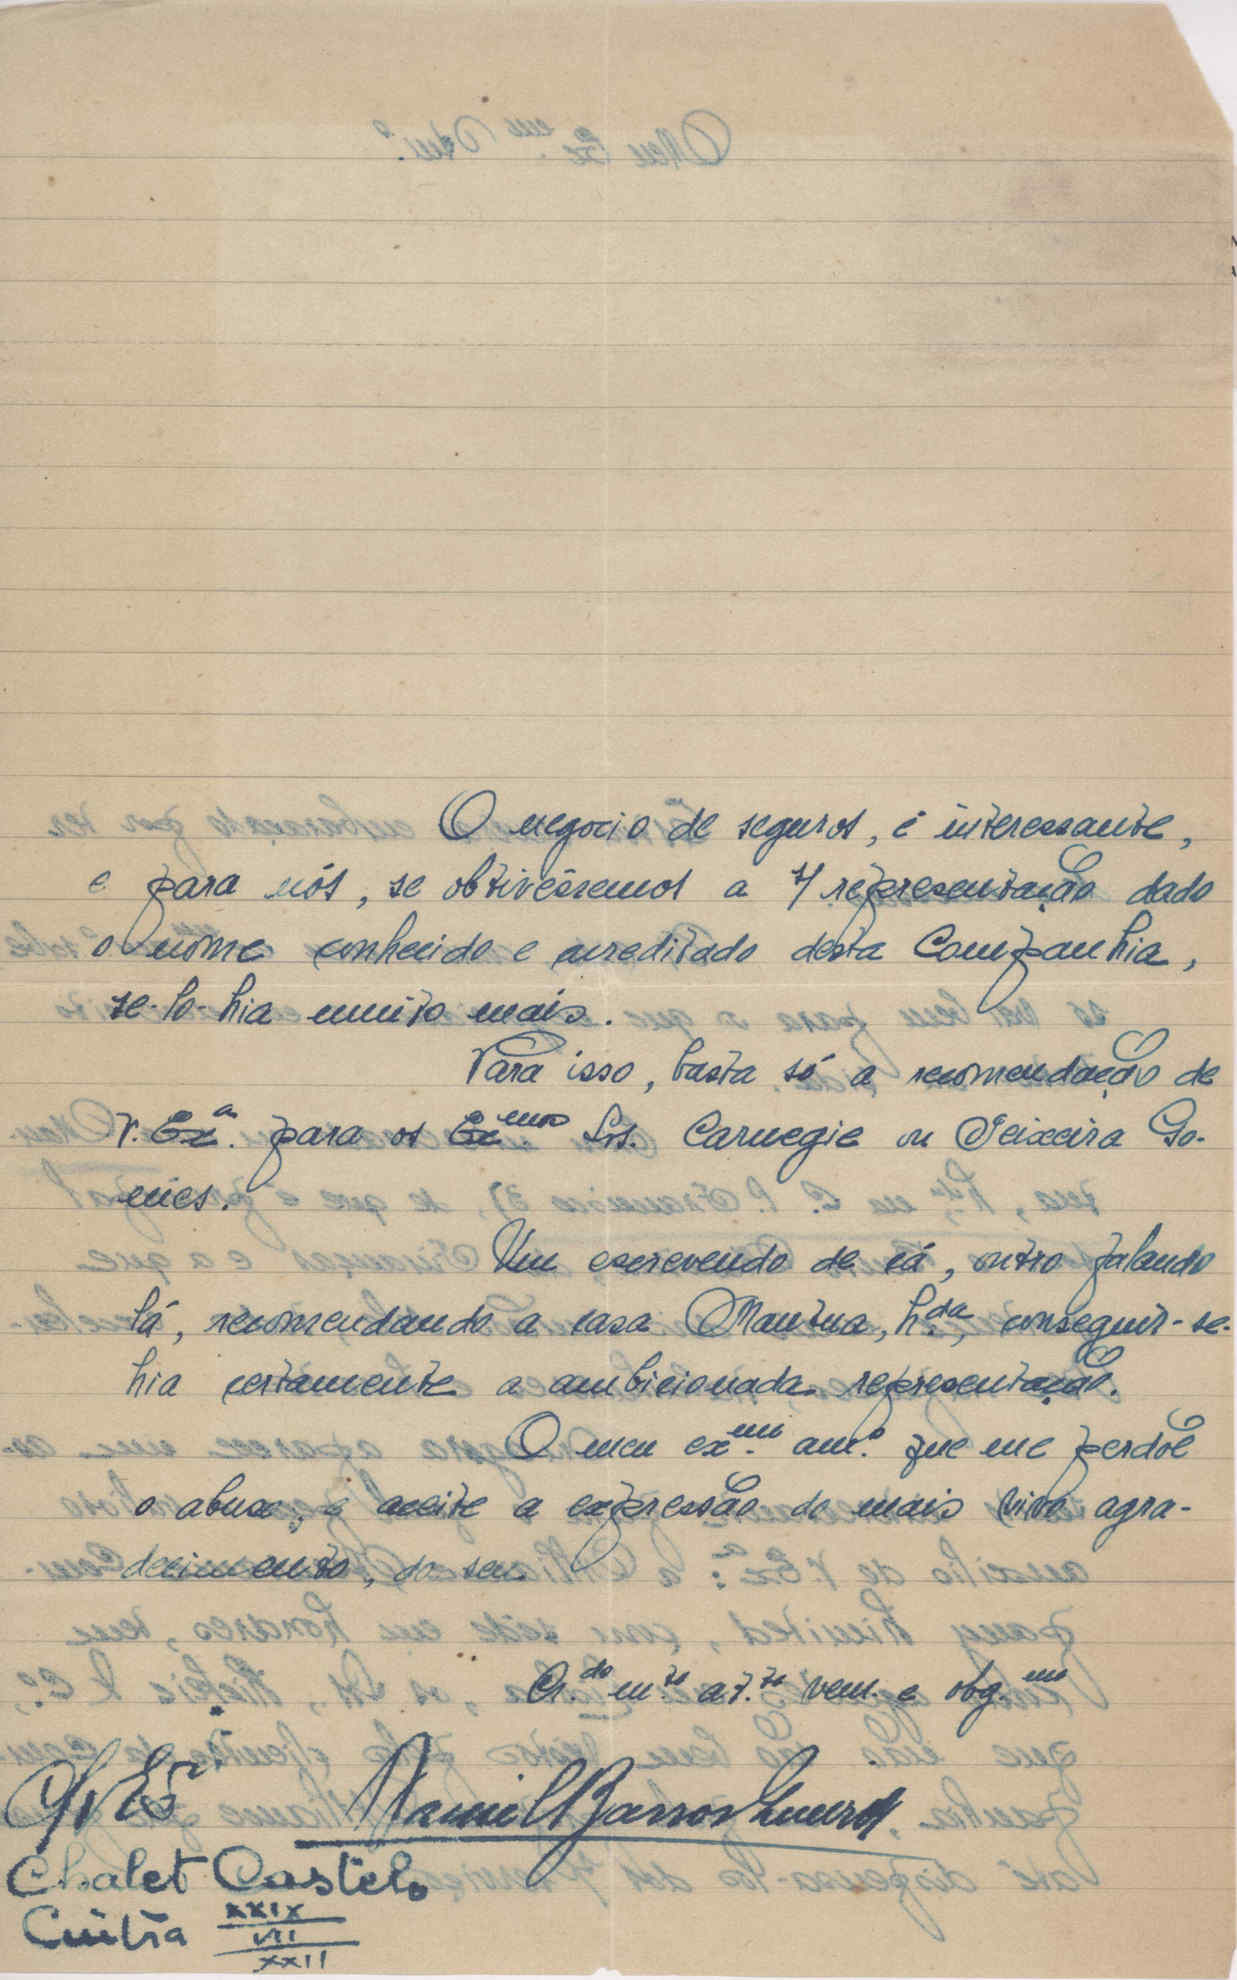 O negocio de seguros, é interessante,
e para nós, se obtivéssemos a representação dado
o nome conhecido e acreditado desta Companhia,
se-lo-hia muito mais.
Para isso, basta só a recomendação de
V. Exª. para os Exmos Srs. Carnegie ou Teixeira Go-
mes.
Um escrevendo de cá, outro falando
lá, recomendando a casa Mantua, Lda, conseguir-se-
hia certamente a ambicionada representação.
O meu exmo. amo. que me perdôe
o abuso, e aceite a expressão do mais vivo agra-
decimento, do seu
Cr.do m.to at.to ven. e obg.mo
Barros
Chalet Castelo
Cintra XXIX
VII
XXII